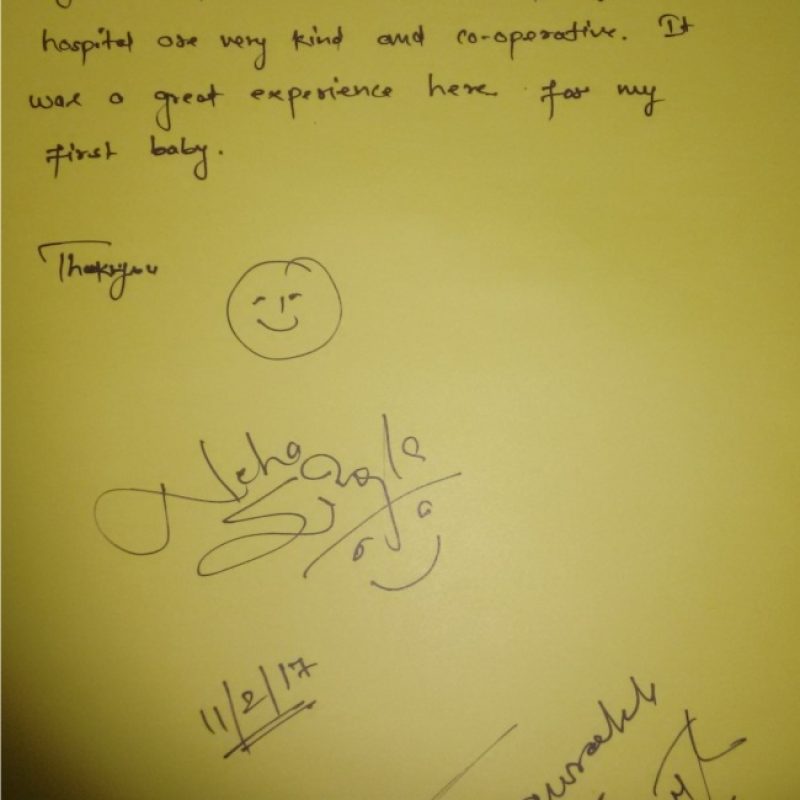 hospital are very kind and co-operative. It
was a great experience here for my
first baby.
Thankyou
Neha
11/2/17